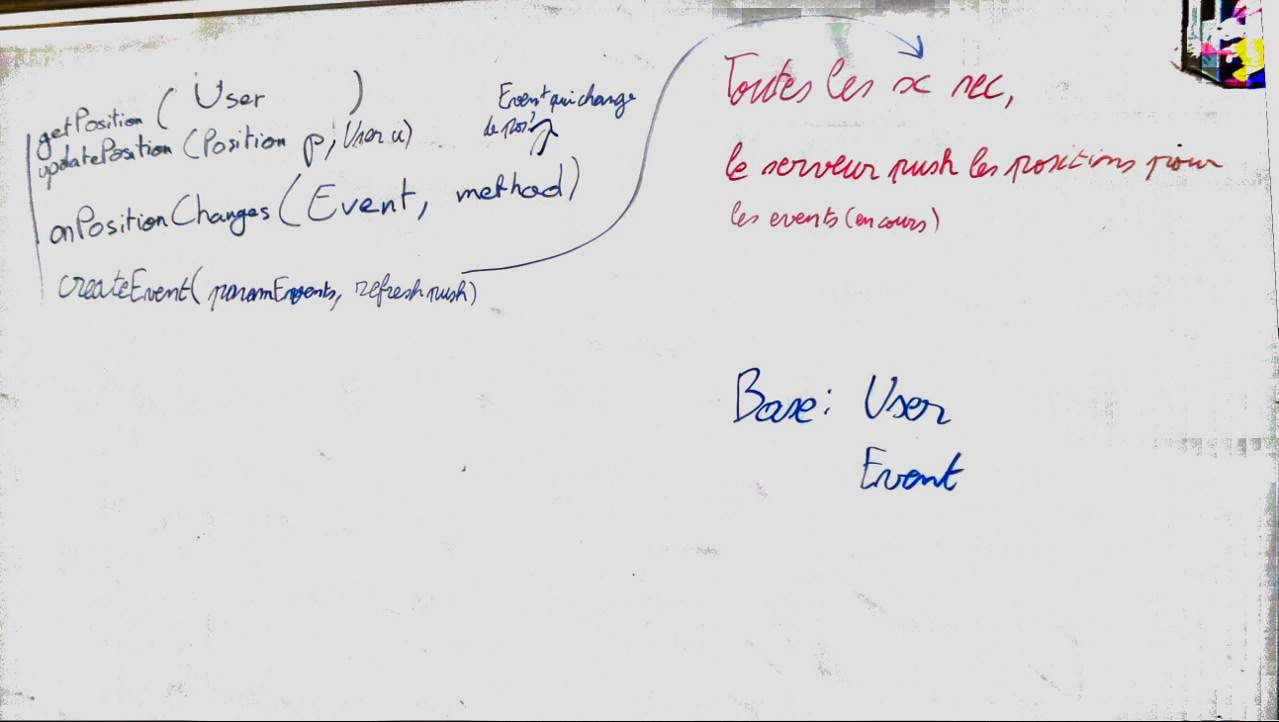 getPosition (User )
updatePosition (Position p, User u)
Event qui change
de pos?
onPositionChanges (Event, method)
createEvent( paramEvents, refresh push)
Toutes les x sec,
le serveur push les positions pour
les events (en cours)
Base: User
Event